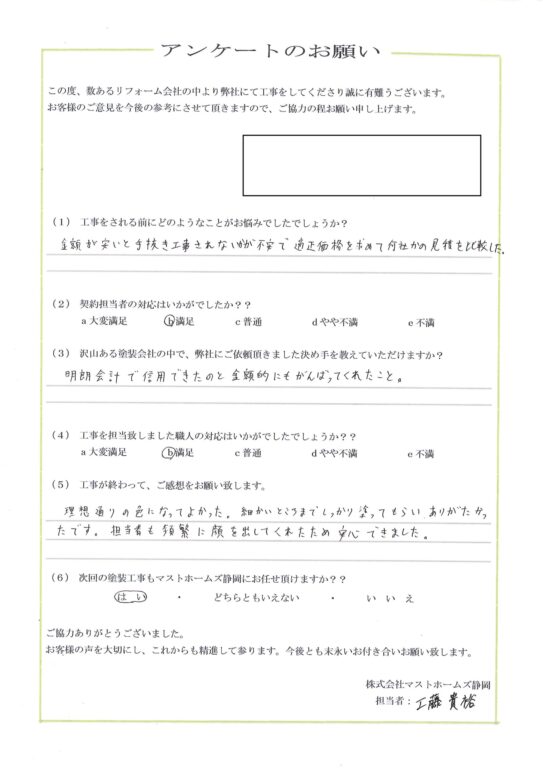 アンケートのお願い
この度、数あるリフォーム会社の中より弊社にて工事をしてくださり誠に有難うございます。
お客様のご意見を今後の参考にさせて頂きますので、ご協力の程お願い申し上げます。
(1) 工事をされる前にどのようなことがお悩みでしたでしょうか?
金額が安いと手抜き工事されないかが不安で適正価格を求めて何社かの見積を比較した。
(2) 契約担当者の対応はいかがでしたか??
a 大変満足 b 満足 c 普通 d やや不満 e 不満
(3) 沢山ある塗装会社の中で、弊社にご依頼頂きました決め手を教えていただけますか?
明朗会計で信用できたのと金額的にもがんばってくれたこと。
(4) 工事を担当致しました職人の対応はいかがでしたでしょうか?
a 大変満足 b 満足 c 普通 d やや不満 e 不満
(5) 工事が終わって、ご感想をお願い致します。
理想通りの色になってよかった。細かいところまでしっかり塗ってもらいありがたかっ
たです。担当者も頻繁に顔を出してくれたため安心できました。
(6) 次回の塗装工事もマストホームズ静岡にお任せ頂けますか??
はい ・ どちらともいえない ・ いいえ
ご協力ありがとうございました。
お客様の声を大切にし、これからも精進して参ります。今後とも末永いお付き合いお願い致します。
株式会社マストホームズ静岡
担当者:工藤 貴裕